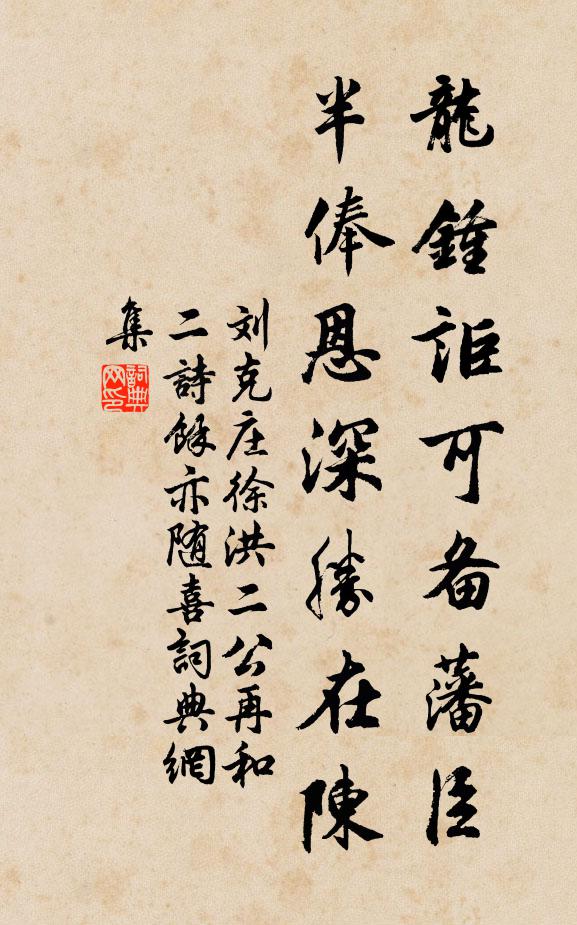 龍鍾詎可备藩臣
半俸恩深勝在陳
刘克庄徐洪二公再和
二詩餘亦随喜詞典網
集
詞典
网印